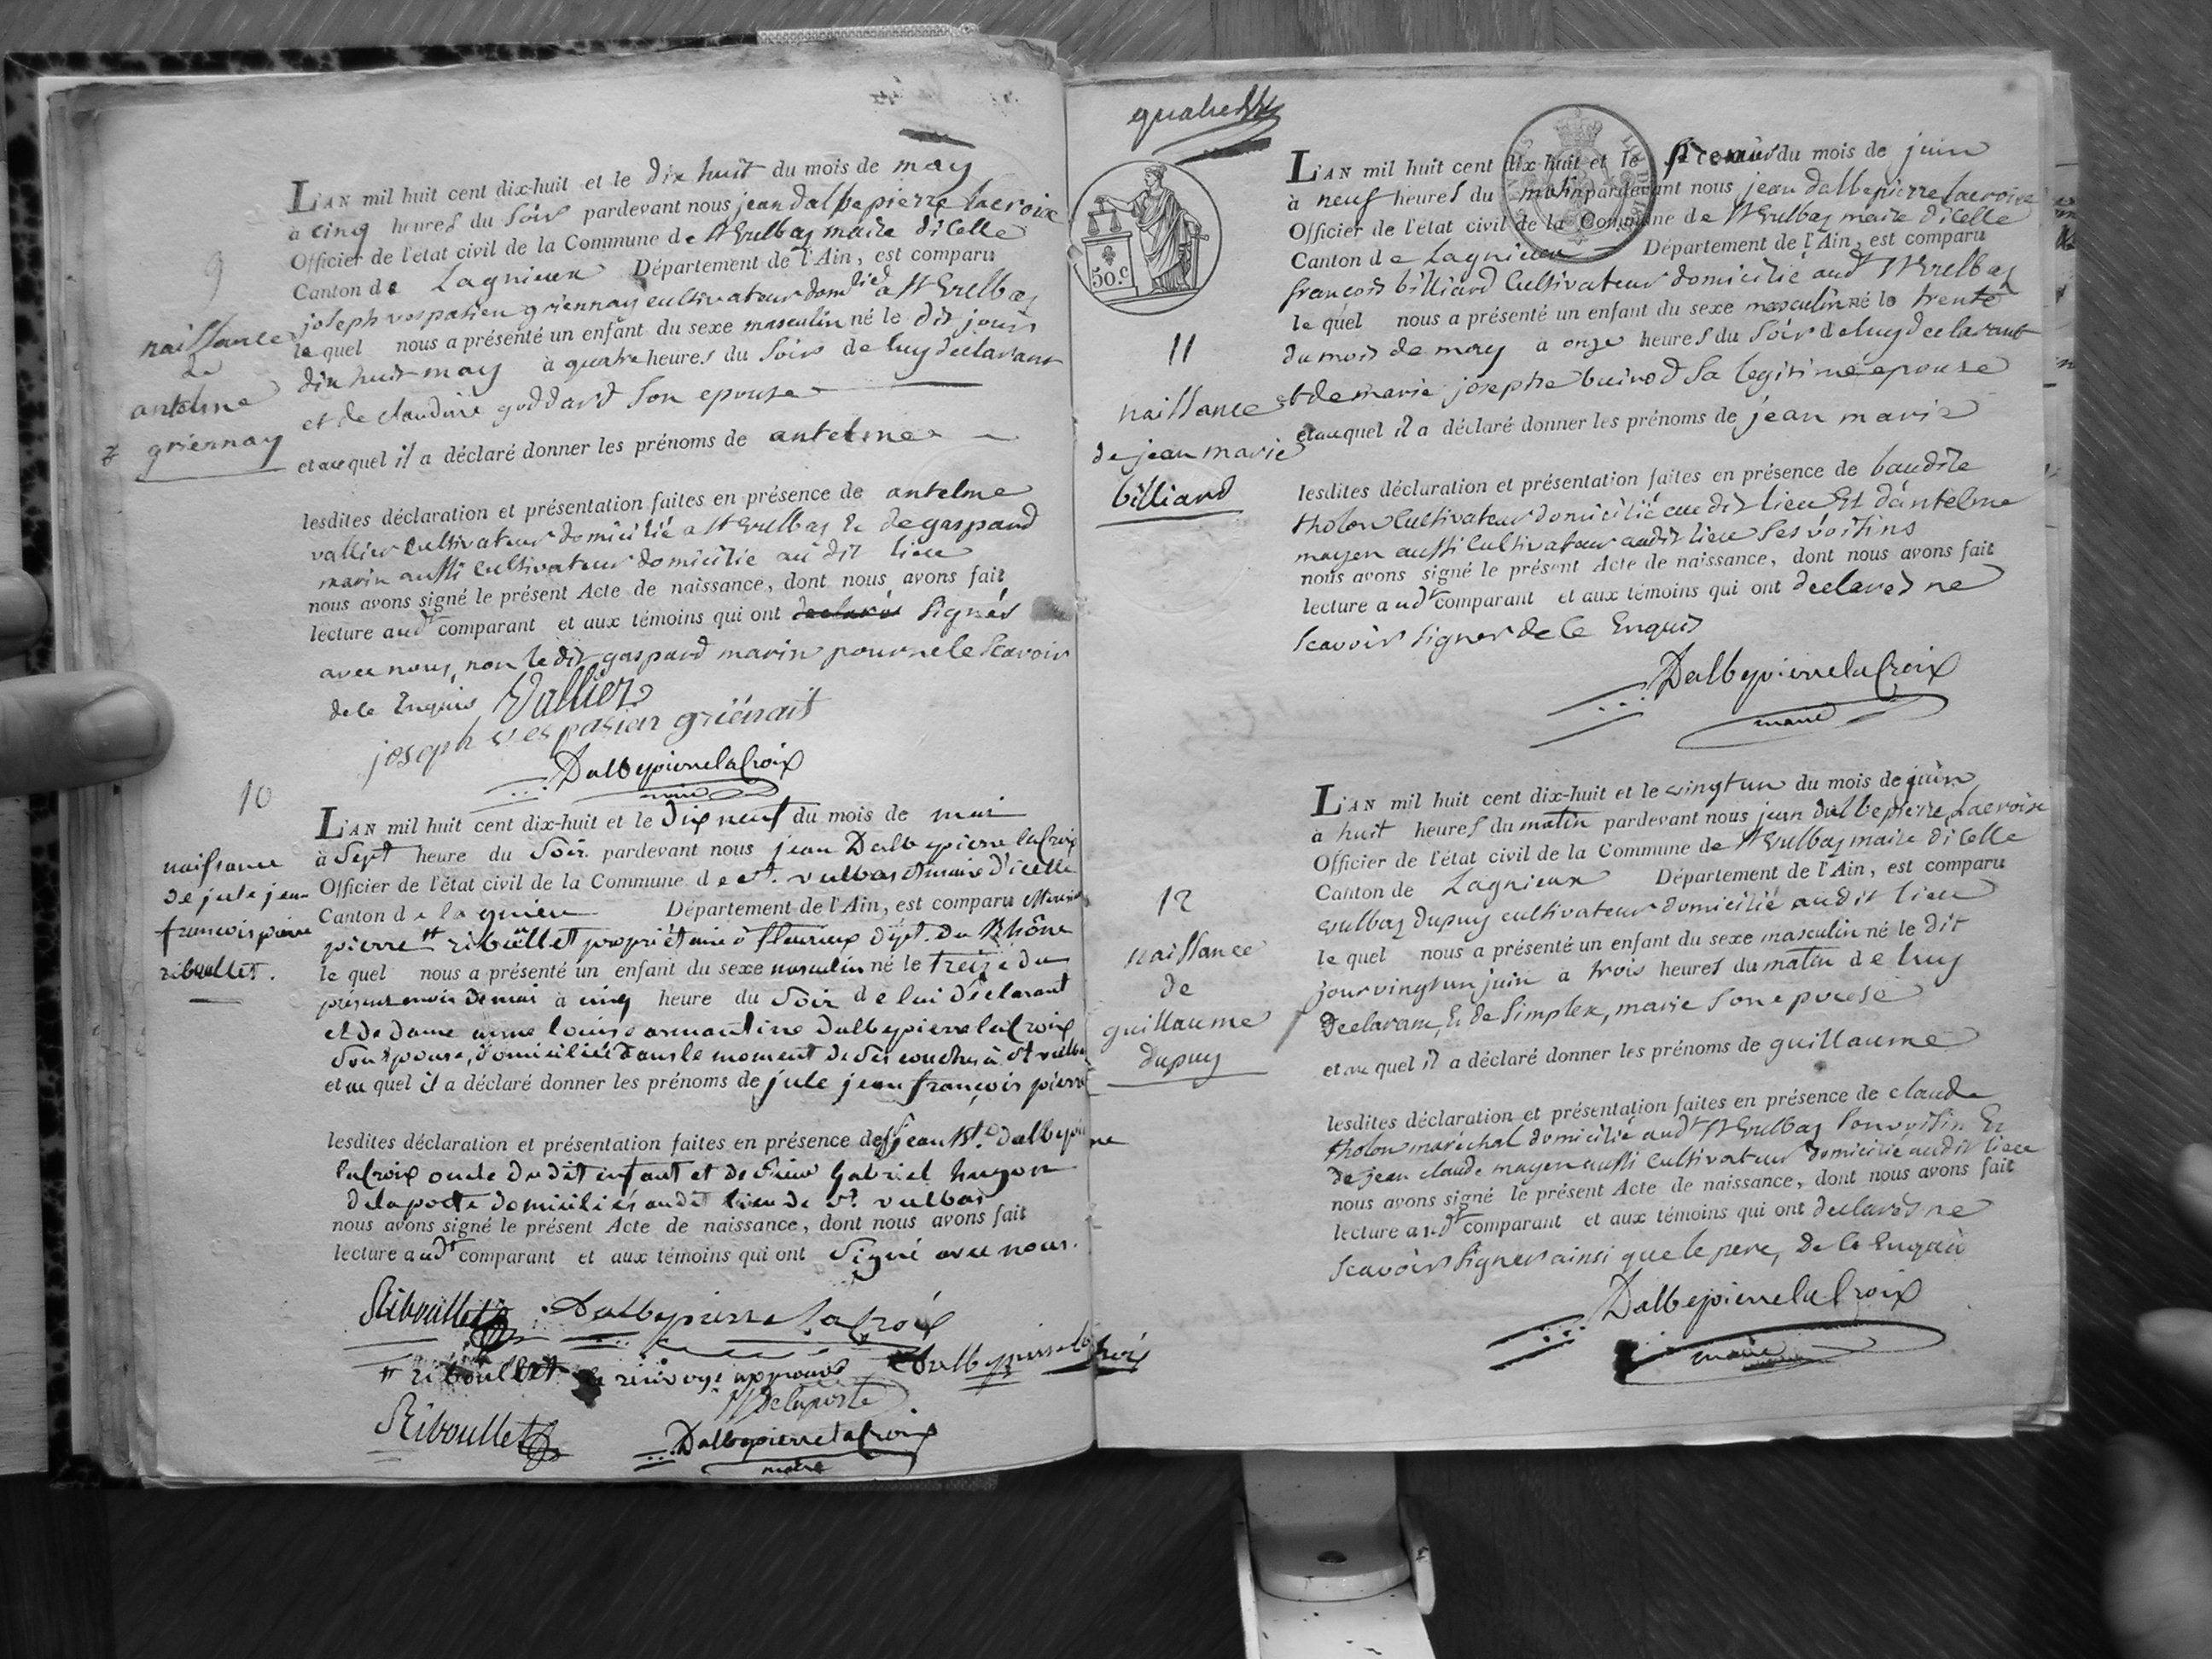 L'AN mil huit cent dix-huit et le dix huit du mois de may
à cinq heures du soir pardevant nous jean dalbepierre lacroix
Officier de l'état civil de la Commune de St Vulbas maire d'icelle
Canton de Lagnieux Département de l'Ain, est comparu
joseph vespasien griennay cultivateur domlié a St Vulbas
le quel nous a présenté un enfant du sexe masculin né le dit jour
dix huit may à quatre heures du soir de luy declarant
et de claudine goddard son epouse
et au quel il a déclaré donner les prénoms de antelme
lesdites déclaration et présentation faites en présence de antelme
vallier cultivateur domicilié a St Vulbas Et de gaspard
marin aussi cultivateur domicilié au dit lieu
nous avons signé le présent Acte de naissance, dont nous avons fait
lecture audt comparant et aux témoins qui ont declaré signés
avec nous, non le dit gaspard marin pour ne le scavoir
de ce Enquis Vallier
joseph vespasien griénait
Dalbepierrelacroix
maire
9
naissance
de
antelme
griennay
L'AN mil huit cent dix-huit et le dix neuf du mois de mai
à sept heure du soir pardevant nous jean Dalbepierre lacroix
Officier de l'état civil de la Commune de st. vulbas et maire d'icelle
Canton de lagnieu Département de l'Ain, est comparu
pierre riboullet propriétaire à fleurieux dépt. du Rhône
le quel nous a présenté un enfant du sexe masculin né le treize du
présent mois de mai à cinq heure du soir de lui déclarant
et de dame anne louise armantine dalbepierre lacroix
son épouse, domiciliée dans le moment de ses couches à st vulbas
et au quel il a déclaré donner les prénoms de jule jean françois pierre
lesdites déclaration et présentation faites en présence de jean Bt. dalbepierre
lacroix oncle du dit enfant et de sieur Gabriel hugon
delaporte domiciliés audit lieu de st. vulbas
nous avons signé le présent Acte de naissance, dont nous avons fait
lecture audt comparant et aux témoins qui ont signé avec nous.
Riboullet Dalbepierre Lacroix
riboullet renvoye approuvé Dalbepierrelacroix
Delaporte
Riboullet Dalbepierrelacroix
maire
10
naissance
de jule jean
françois pierre
riboullet.
50.c
L'AN mil huit cent dix-huit et le premier du mois de juin
à neuf heures du matin pardevant nous jean dalbepierre lacroix
Officier de l'état civil de la Commune de St Vulbas maire d'icelle
Canton de Lagnieux Département de l'Ain, est comparu
françois billiard Cultivateur domicilié audt St Vulbas
le quel nous a présenté un enfant du sexe masculin né le trente
du mois de may à onze heures du soir de luy declarant
et de marie josephe buirod sa legitime epouse
et au quel il a déclaré donner les prénoms de jean marie
lesdites déclaration et présentation faites en présence de baudile
tholon Cultivateur domicilié au dit lieu Et d'antelme
moyen aussi Cultivateur audit lieu ses voisins
nous avons signé le présent Acte de naissance, dont nous avons fait
lecture audt comparant et aux témoins qui ont declarés ne
scavoir signer de ce Enquis
Dalbepierrelacroix
maire
11
naissance
de jean marie
billiard
L'AN mil huit cent dix-huit et le vingt un du mois de juin
à huit heures du matin pardevant nous jean dalbepierre Lacroix
Officier de l'état civil de la Commune de St Vulbas maire d'icelle
Canton de Lagnieux Département de l'Ain, est comparu
vulbas dupuy cultivateur domicilié au dit lieu
le quel nous a présenté un enfant du sexe masculin né le dit
jour vingt un juin à trois heures du matin de luy
declarant, Et de simplex, marie son epouse
et au quel il a déclaré donner les prénoms de guillaume
lesdites déclaration et présentation faites en présence de claude
tholon maréchal domicilié audt St Vulbas son voisin Et
de jean claude moyen aussi Cultivateur domicilié audit lieu
nous avons signé le présent Acte de naissance, dont nous avons fait
lecture audt comparant et aux témoins qui ont declarés ne
scavoir signer ainsi que le pere, De ce Enquis
Dalbepierrelacroix
maire
12
naissance
de
guillaume
dupuy